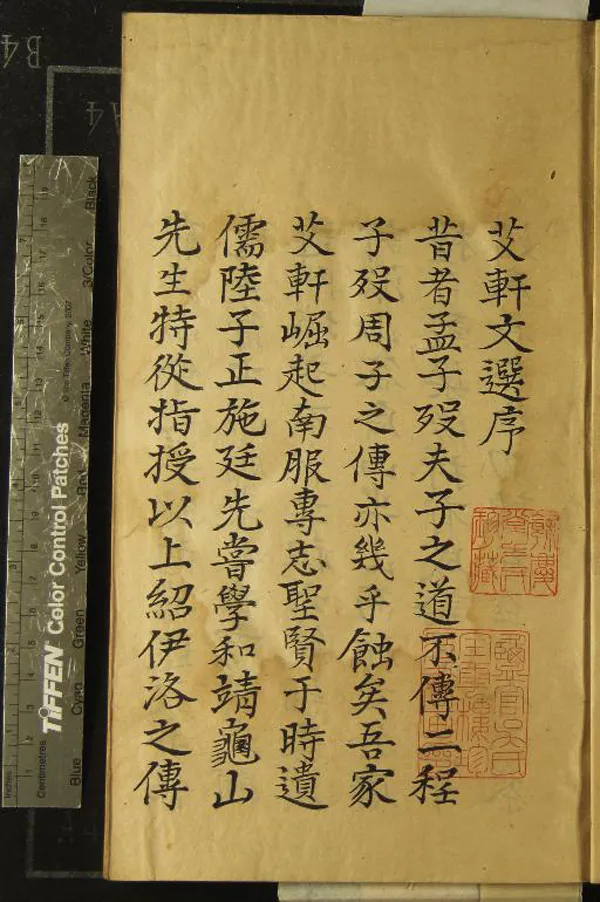 艾軒文選序
昔者孟子歿夫子之道不傳二程
子歿周子之傳亦幾乎蝕矣吾家
艾軒崛起南服專志聖賢于時遺
儒陸子正施廷先嘗學和靖龜山
先生特從指授以上紹伊洛之傳
TIFFEN Color Control Patches
Blue Cyan Green Yellow Red Magenta White 3/Color Black
Centimetres
Inches
B4
A4